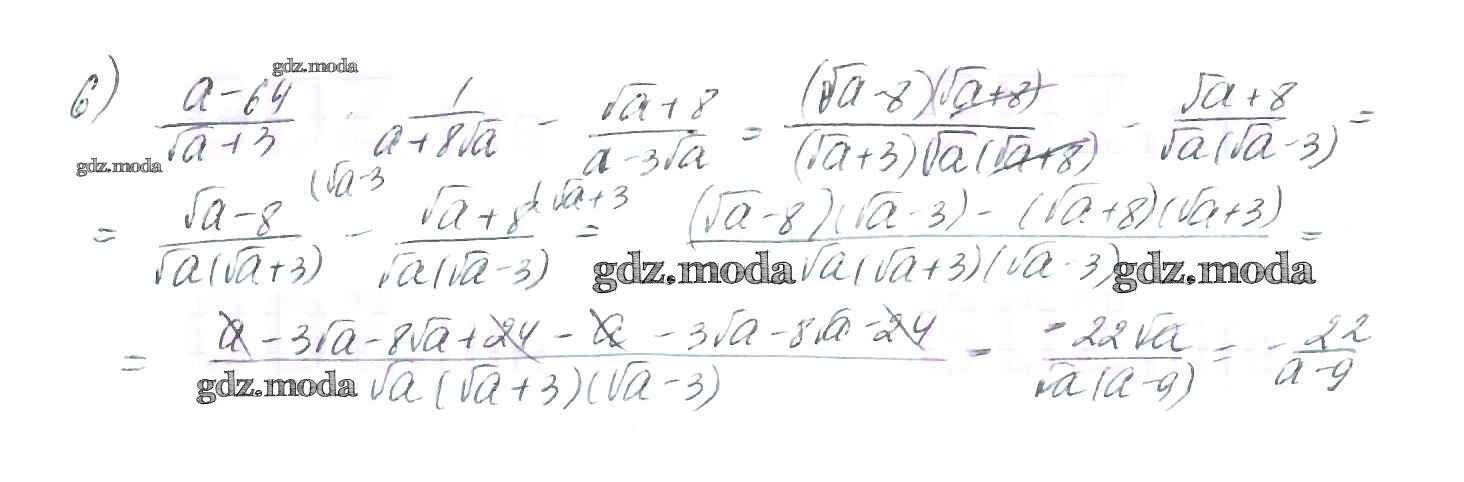 6) \frac{a-64}{\sqrt{a}+3} \cdot \frac{1}{a+8\sqrt{a}} - \frac{\sqrt{a}+8}{a-3\sqrt{a}} = \frac{(\sqrt{a}-8)(\sqrt{a}+8)}{(\sqrt{a}+3)\sqrt{a}(\sqrt{a}+8)} - \frac{\sqrt{a}+8}{\sqrt{a}(\sqrt{a}-3)} =
gdz.moda
gdz.moda
(\sqrt{a}-3 (\sqrt{a}+3
= \frac{\sqrt{a}-8}{\sqrt{a}(\sqrt{a}+3)} - \frac{\sqrt{a}+8}{\sqrt{a}(\sqrt{a}-3)} = \frac{(\sqrt{a}-8)(\sqrt{a}-3) - (\sqrt{a}+8)(\sqrt{a}+3)}{\sqrt{a}(\sqrt{a}+3)(\sqrt{a}-3)} =
gdz.moda gdz.moda
= \frac{a-3\sqrt{a}-8\sqrt{a}+24-a-3\sqrt{a}-8\sqrt{a}-24}{\sqrt{a}(\sqrt{a}+3)(\sqrt{a}-3)} = \frac{-22\sqrt{a}}{\sqrt{a}(a-9)} = -\frac{22}{a-9}
gdz.moda